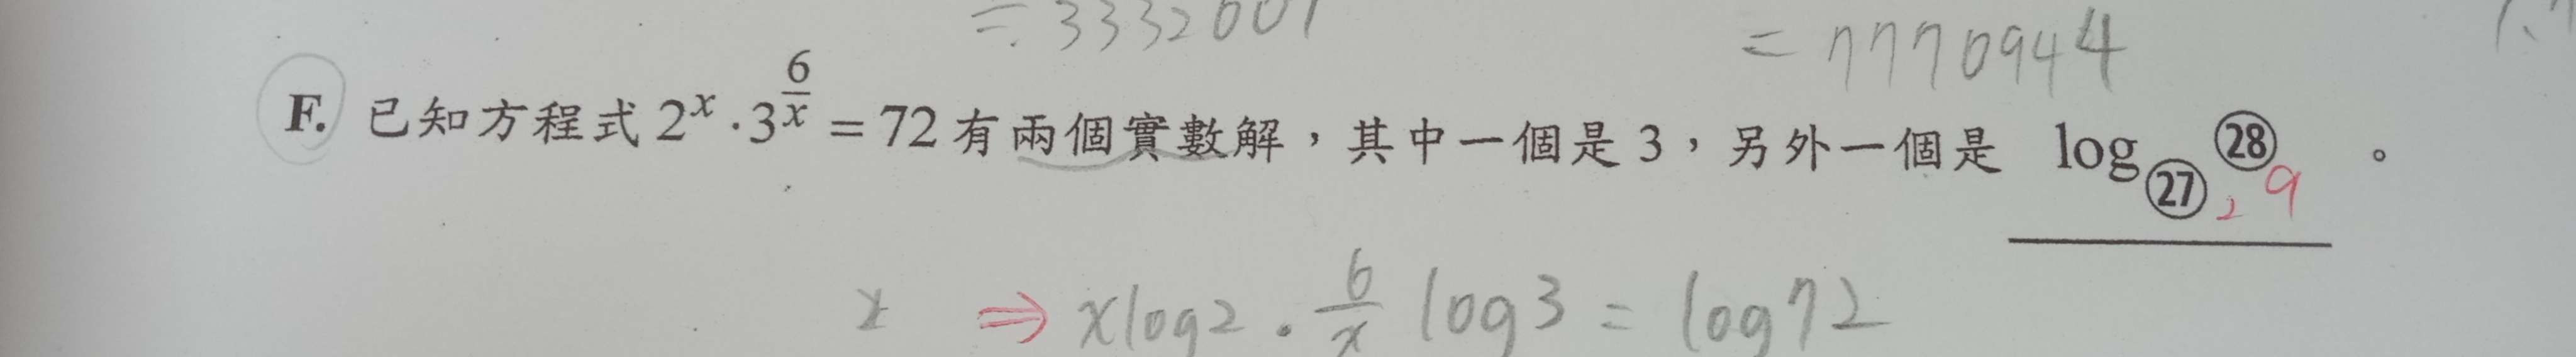 = 3332001
= 7770944
F. 已知方程式 2^x · 3^{6/x} = 72 有兩個實數解，其中一個是 3，另外一個是 log_㉗ ㉘ 。
2 9
x ⇒ x log2 · 6/x log3 = log72